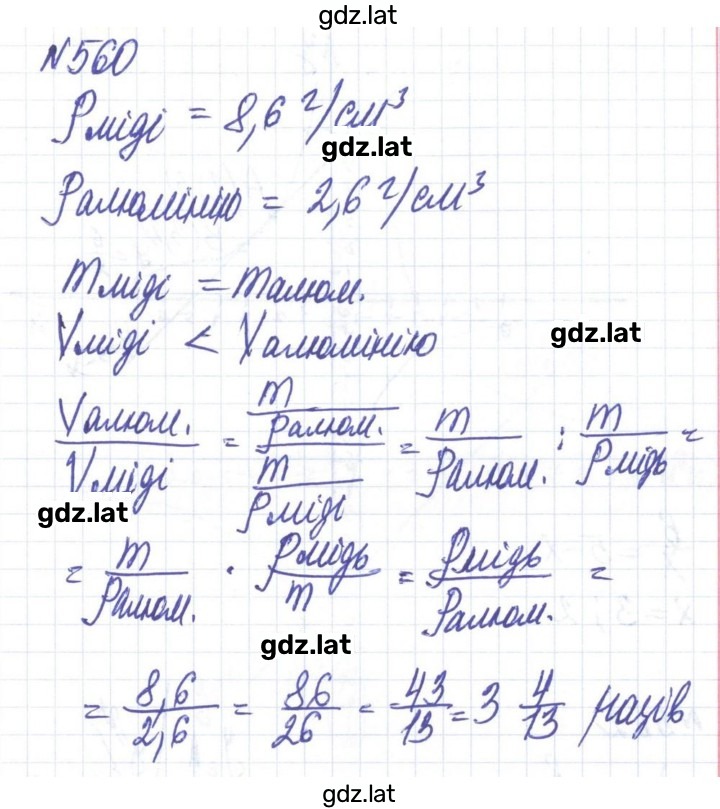 gdz.lat
№560
ρміді = 8,6 г/см³
gdz.lat
ρалюмінію = 2,6 г/см³
mміді = mалюм.
Vміді < Vалюмінію
gdz.lat
Vалюм./Vміді = (m/ρалюм.)/(m/ρміді) = m/ρалюм. : m/ρмідь =
gdz.lat
= m/ρалюм. · ρмідь/m = ρмідь/ρалюм. =
gdz.lat
= 8,6/2,6 = 86/26 = 43/13 = 3 4/13 разів
gdz.lat